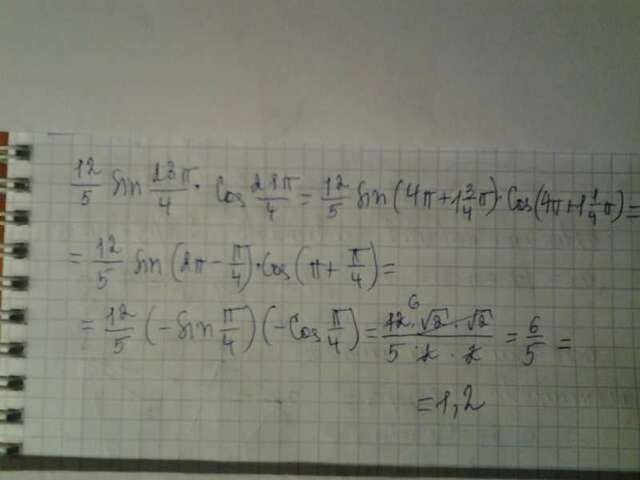 12/5 sin 23π/4 · cos 21π/4 = 12/5 sin(4π+1 3/4 π) · cos(4π+1 1/4 π) =
= 12/5 sin(2π − π/4) · cos(π + π/4) =
= 12/5 (−sin π/4)(−cos π/4) = 12 6 · √2 · √2 / 5 · 2 · 2 = 6/5 =
= 1,2